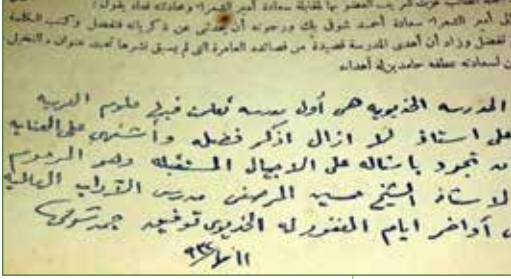 الى أمير الشعراء سعادة أحمد شوقي بك ورجوته أن يحدثني عن ذكرياته فتفضل وكتب الكلمة
تفضل وزاد أن أهدى المدرسة قصيدة من قصائده العامرة التي لم يسبق نشرها تحت عنوان
لسعادته عطفه
المدرسه الخديويه هى أول مدرسه تعلمت فيها علوم العربيه
على استاذ لا ازال اذكر فضله وأشتهى على العنايه
تجود بامثاله على الاجيال المستقبله وهو المرحوم
الاستاذ الشيخ حسين المرصفى مدرس الآداب العاليه
أواخر ايام المغفور له الخديوى توفيق